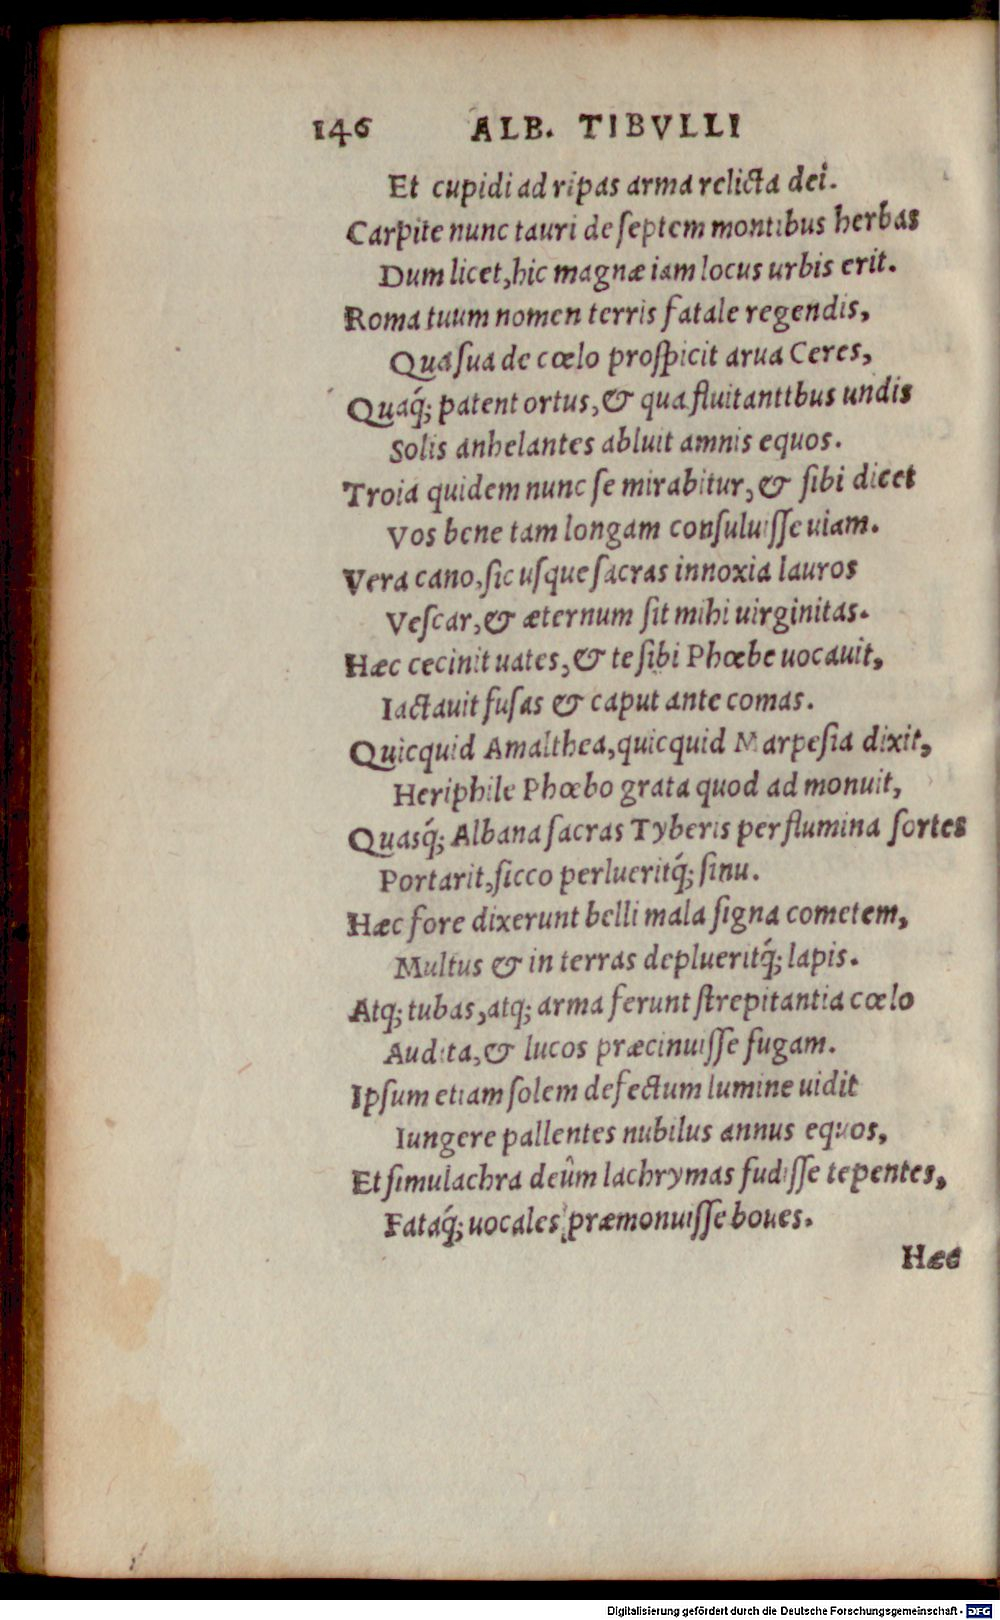 146 ALB. TIBVLLI
Et cupidi ad ripas arma relicta dei.
Carpite nunc tauri de ſeptem montibus herbas
Dum licet, hic magnæ iam locus urbis erit.
Roma tuum nomen terris fatale regendis,
Qua ſua de cœlo proſpicit arua Ceres,
Quaq́; patent ortus, & qua fluitanttbus undis
Solis anhelantes abluit amnis equos.
Troia quidem nunc ſe mirabitur, & ſibi dicet
Vos bene tam longam conſuluiſſe uiam.
Vera cano, ſic uſque ſacras innoxia lauros
Veſcar, & æternum ſit mihi uirginitas.
Hæc cecinit uates, & te ſibi Phœbe uocauit,
Iactauit fuſas & caput ante comas.
Quicquid Amalthea, quicquid Marpeſia dixit,
Heriphile Phœbo grata quod ad monuit,
Quasq́; Albana ſacras Tyberis per flumina ſortes
Portarit, ſicco perlueritq́; ſinu.
Hæc fore dixerunt belli mala ſigna cometem,
Multus & in terras deplueritq́; lapis.
Atq; tubas, atq; arma ferunt ſtrepitantia cœlo
Audita, & lucos præcinuiſſe fugam.
Ipſum etiam ſolem defectum lumine uidit
Iungere pallentes nubilus annus equos,
Et ſimulachra deûm lachrymas fudiſſe tepentes,
Fataq́; uocales præmonuiſſe boues.
Hæc
Digitalisierung gefördert durch die Deutsche Forschungsgemeinschaft - DFG